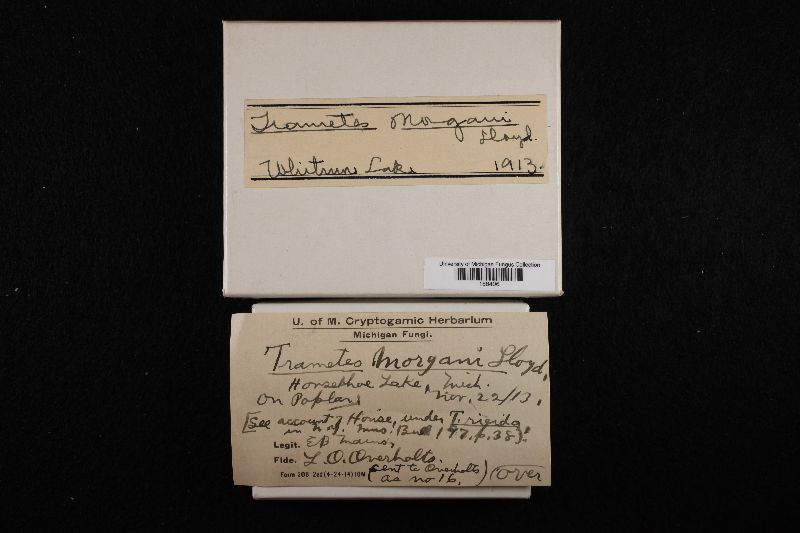 Trametes Morgani
Lloyd.
Whitmore Lake 1913.
University of Michigan Fungus Collection
U. of M. Cryptogamic Herbarium
Michigan Fungi.
Trametes Morgani Lloyd,
Horseshoe Lake, Mich.
On Poplar, Nov. 22/13,
[See account of House, under T. rigida
in N.Y. Mus. Bul 197, p. 38].
Legit. EB Mains,
Fide. L. O. Overholts.
Form 308 2ed (4-24-14) 10M (Sent to Overholts
as no 16,) (over